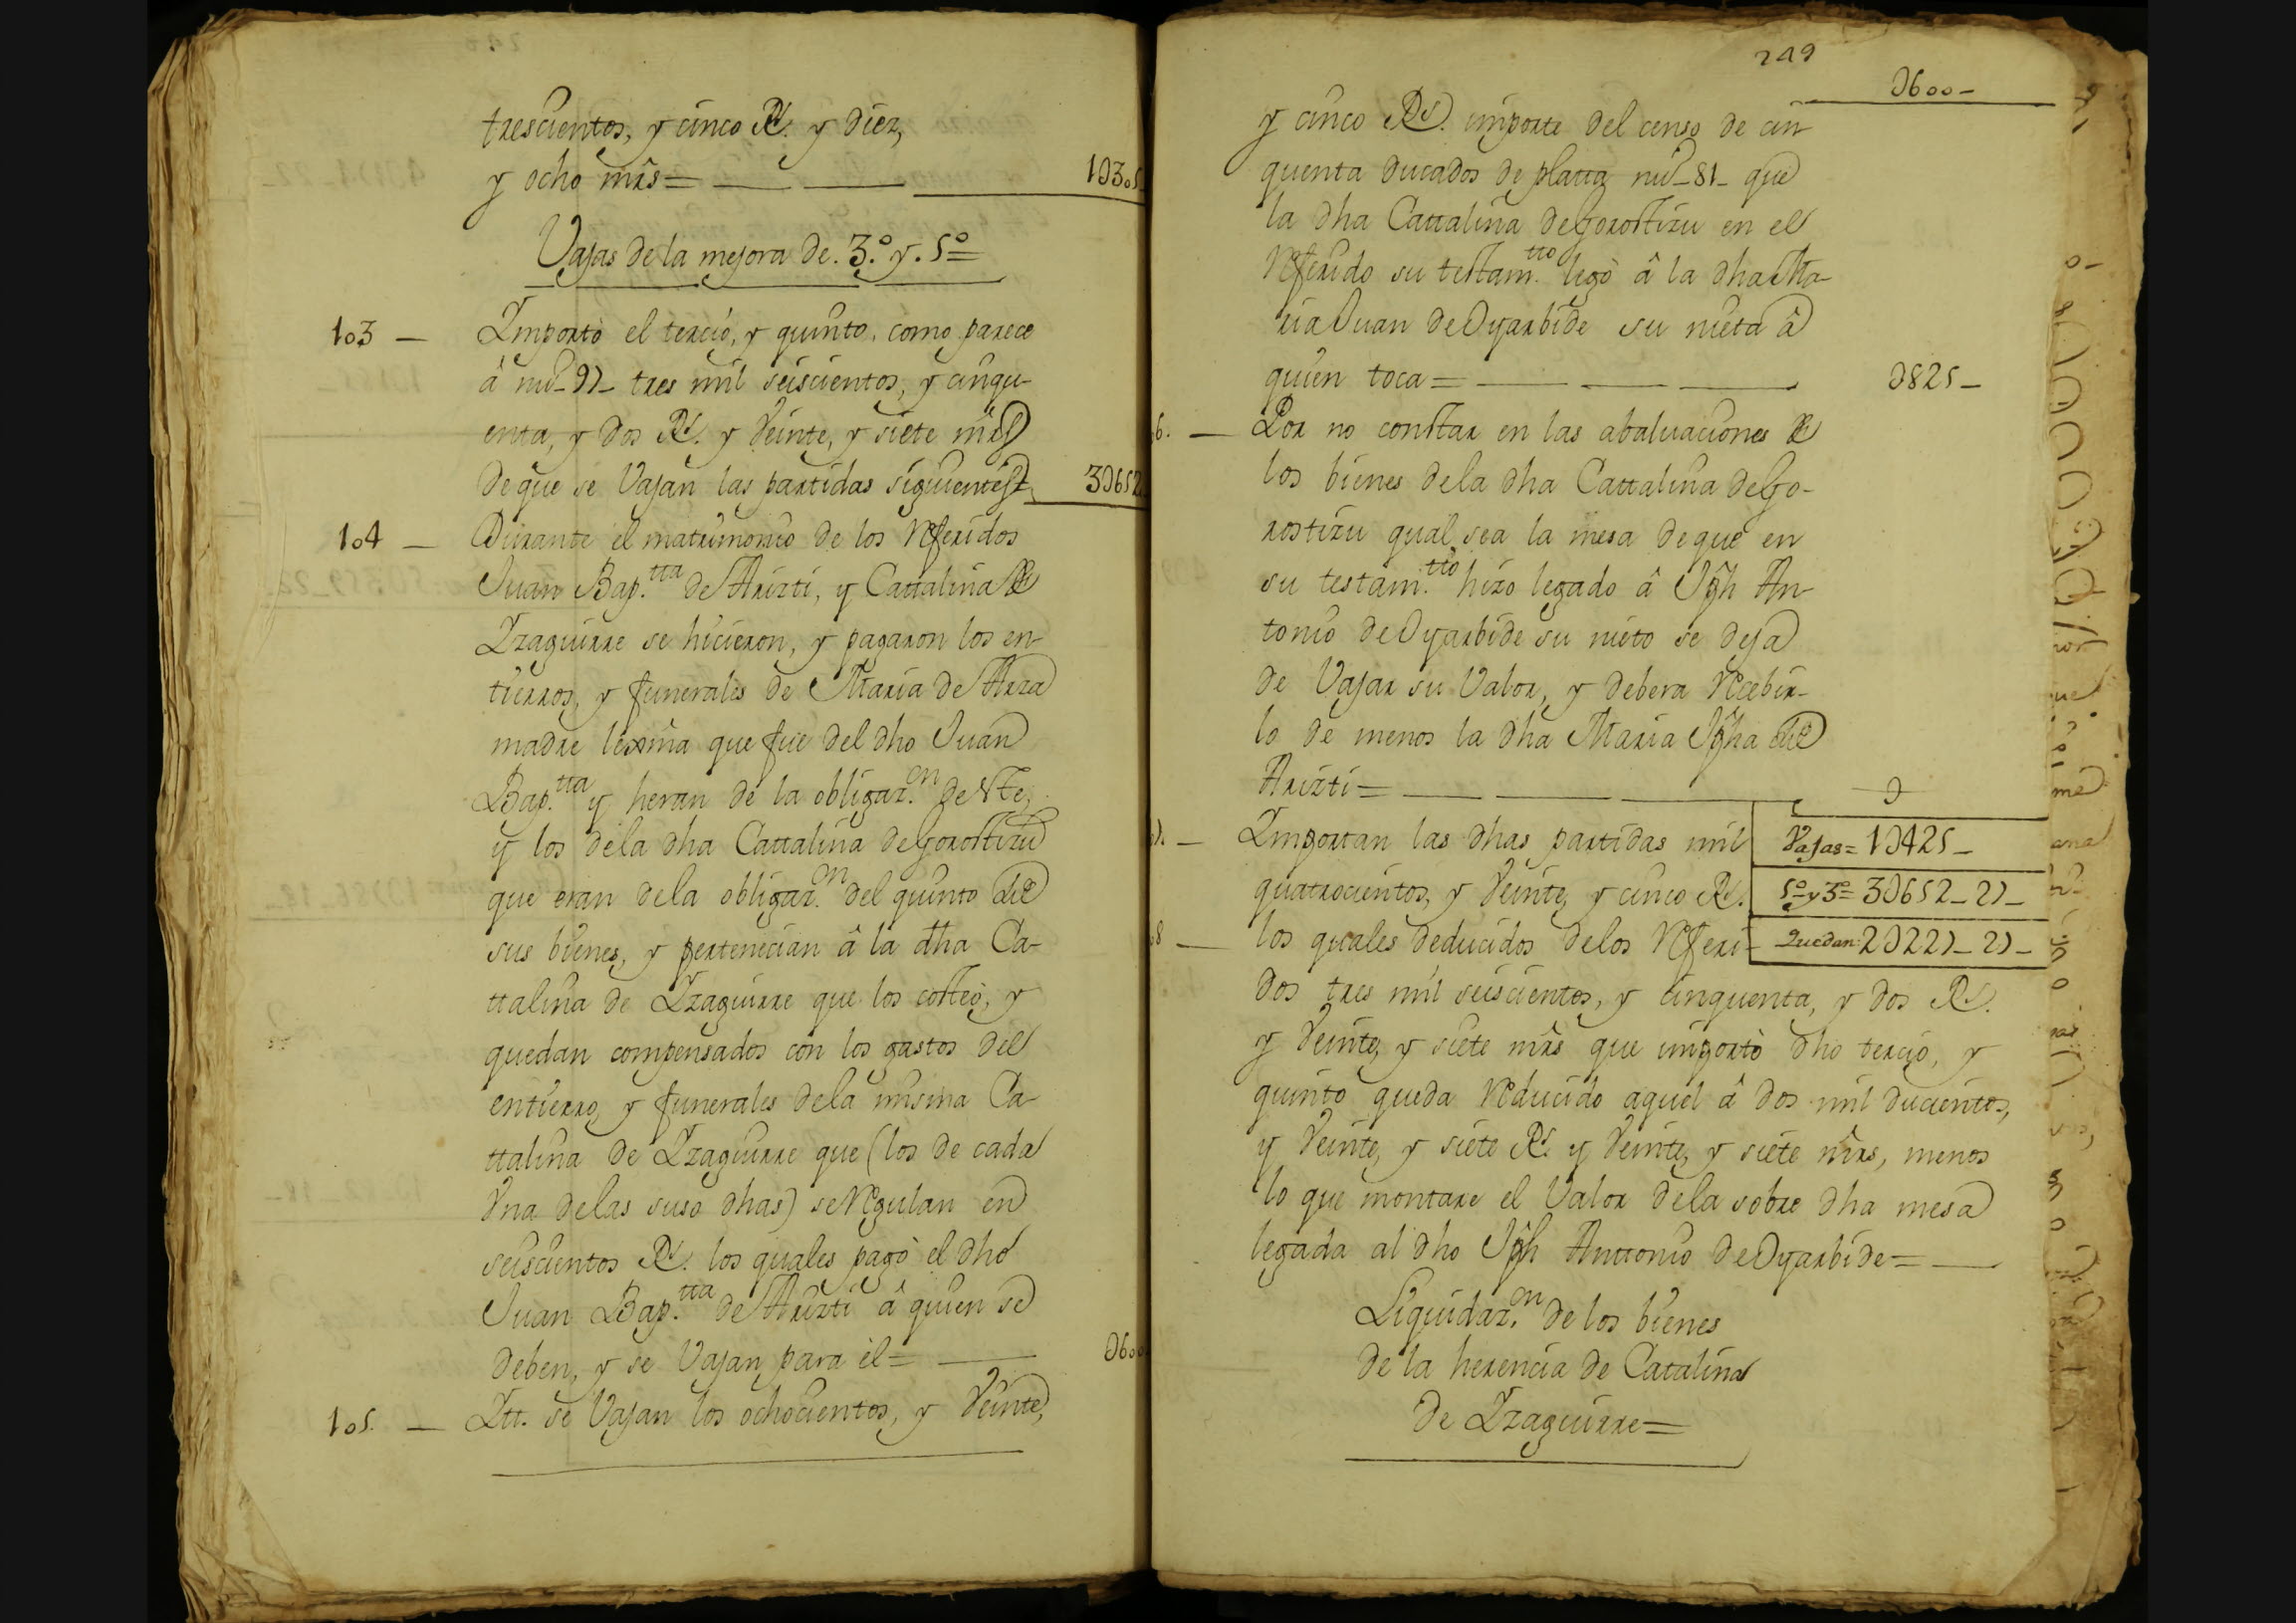 trescientos, y cinco Rs. y diez,
y ocho mrs= 1U305
Vajas de la mejora de. 3.º y. 5º=
103 — Importò el tercio, y quinto, como parece
â nuº_97_ tres mil seiscientos, y cinqu-
enta, y dos Rs. y Veinte, y siete mrs
de que se Vajan las partidas siguientes 3U652
104 — Durante el matrimonio de los Referidos
Juan Bap.tta de Arizti, y Cattalina de
Yzaguirre se hicieron, y pagaron los en-
tierros, y funerales de Maria de Arza
madre lexma que fue del dho Juan
Bap.tta y heran de la obligaz.on de este,
y los dela dha Cattalina de Gorostizu
que eran dela obligaz.on del quinto de
sus bienes, y pertenecian â la dha Ca-
ttalina de Yzaguirre que los costeò, y
quedan compensados con los gastos del
entierro, y funerales dela misma Ca-
ttalina de Yzaguirre que (los de cada
Vna delas suso dhas) se Regulan en
seiscientos Rs. los quales pagò el dho
Juan Bap.tta de Arizti â quien se
deben, y se Vajan para èl= U600
105. — Ytt. se Vajan los ochocientos, y Veinte,
249
U600-
y cinco Rs. importe del censo de cin-
quenta ducados de platta nuº_81_ que
la dha Cattalina de Gorostizu en el
Referido su testam.tto legò â la dha Ma-
ria Juan de Oyarbide su nieta â
quien toca= U825_
6. — Por no constar en las abaluaciones de
los bienes dela dha Cattalina de Go-
rostizu qual sea la mesa de que en
su testam.tto hizo legado â Jph An-
tonio de Oyarbide su nieto se deja
de Vajar su Valor, y debera Recebir-
lo de menos la dha Maria Jpha de
Arizti= U
7. — Importan las dhas partidas mil Vajas= 1U425_
quatrocientos, y Veinte, y cinco Rs. 5º y 3º= 3U652_27_
8 — los quales deducidos delos Referi- Quedan= 2U227_27_
dos tres mil seiscientos, y cinquenta, y dos Rs.
y Veinte, y siete mrs que importò dho tercio, y
quinto queda Reducido aquel â dos mil ducientos,
y Veinte, y siete Rs. y Veinte, y siete mrs, menos
lo que montare el Valor dela sobre dha mesa
legada al dho Jph Anttonio de Oyarbide=
Liquidaz.on de los bienes
de la herencia de Catalina
de Yzaguirre=